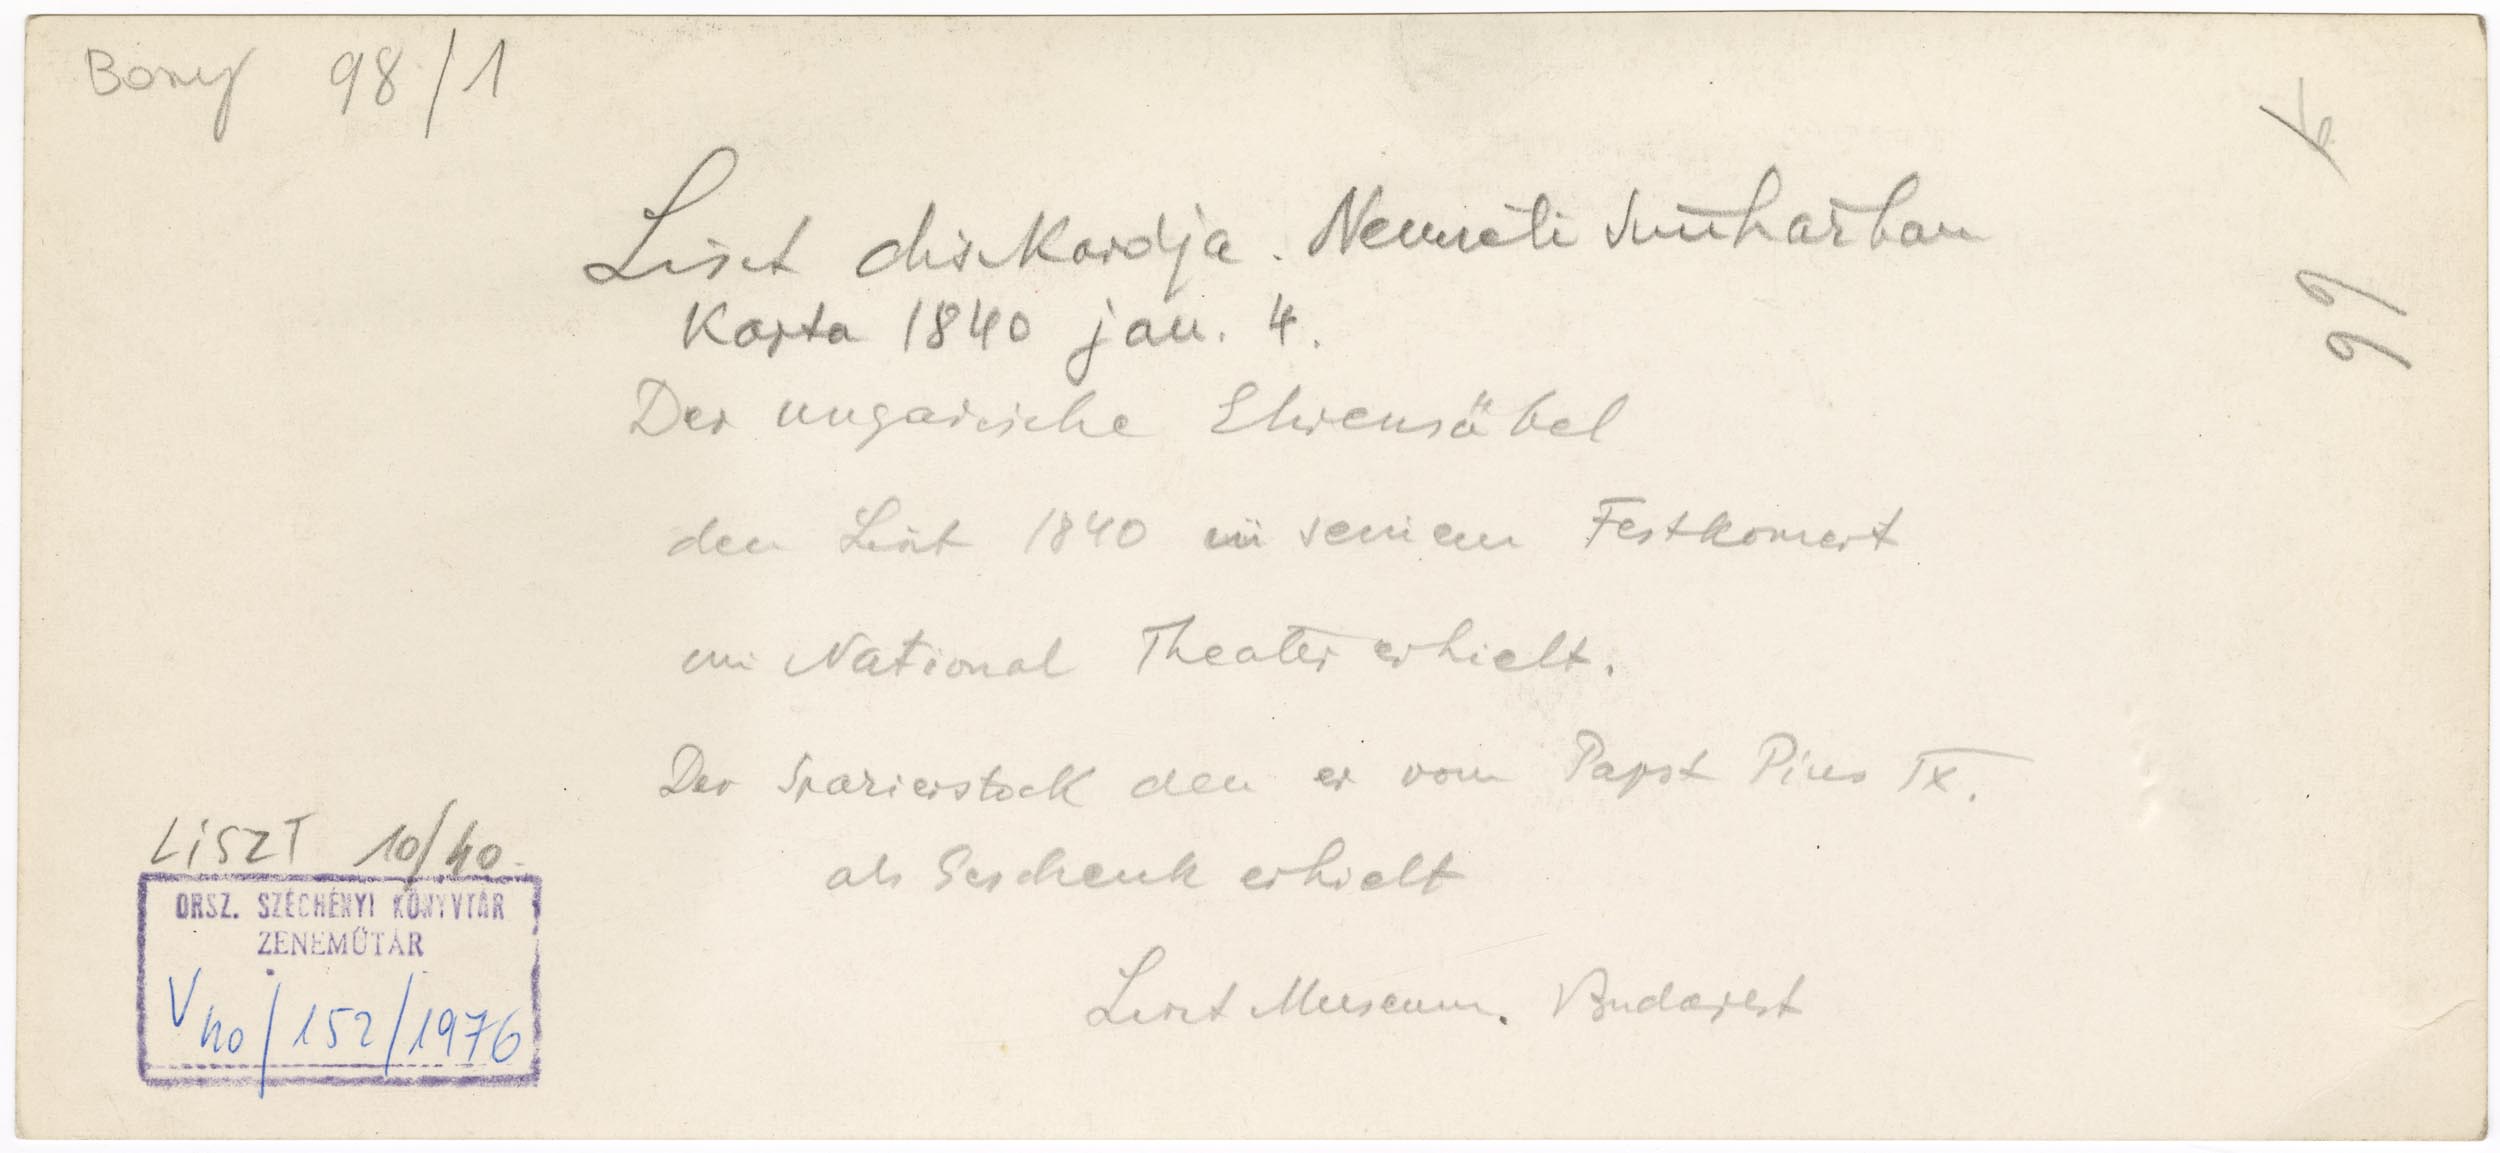 Bony 98/1
Liszt diszkardja. Nemzeti Szinházban
Kapta 1840 jan. 4.
Der ungarische Ehrensäbel
den Liszt 1840 in seinem Festkonzert
im National Theater erhielt.
Der Spazierstock den er vom Papst Pius IX.
als Geschenk erhielt
Liszt Museum. Budapest
LISZT 10/40
ORSZ. SZÉCHÉNYI KÖNYVTÁR
ZENEMŰTÁR
V 40/152/1976